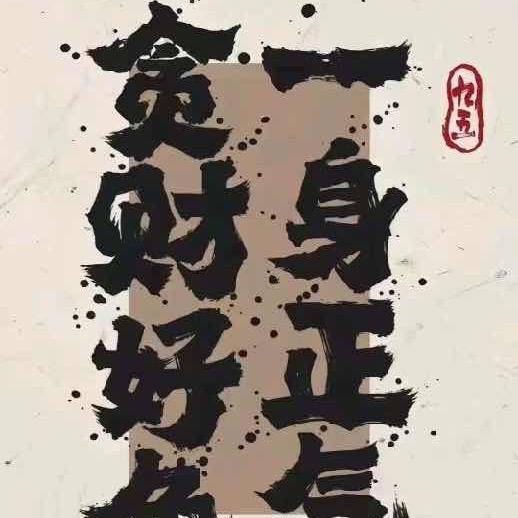 一身正气
贪财好色
九五